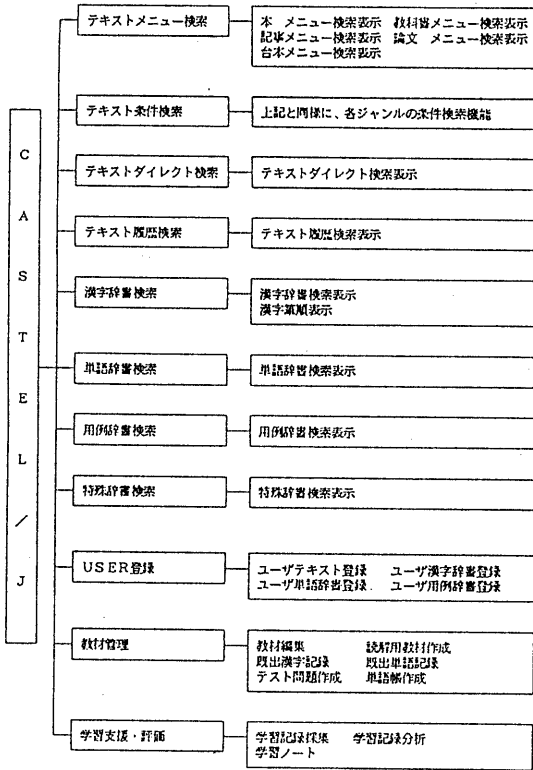 CASTEL/J
テキストメニュー検索
本 メニュー検索表示 教科書メニュー検索表示
記事メニュー検索表示 論文 メニュー検索表示
台本メニュー検索表示
テキスト条件検索
上記と同様に、各ジャンルの条件検索機能
テキストダイレクト検索
テキストダイレクト検索表示
テキスト履歴検索
テキスト履歴検索表示
漢字辞書検索
漢字辞書検索表示
漢字筆順表示
単語辞書検索
単語辞書検索表示
用例辞書検索
用例辞書検索表示
特殊辞書検索
特殊辞書検索表示
USER登録
ユーザテキスト登録 ユーザ漢字辞書登録
ユーザ単語辞書登録 ユーザ用例辞書登録
教材管理
教材編集 読解用教材作成
既出漢字記録 既出単語記録
テスト問題作成 単語帳作成
学習支援・評価
学習記録採集 学習記録分析
学習ノート